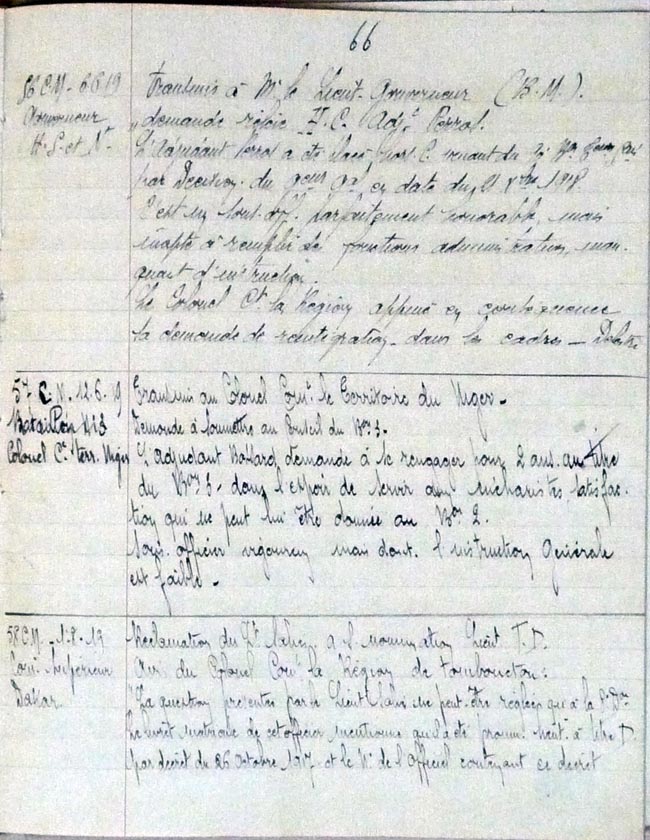 66
56 C.M. 6.6.19
Gouverneur
H.S. et Nr
Transmis à Mr le Lieut. Gouverneur (B.M.).
demande rejoie H.C. Adjt Perral.
L'adjudant Perral a été placé hors C. venant du
par Décision du Gal en date du 21 1918.
C'est un sous. off. parfaitement honorable, mais
inapte à remplir de fonctions administratives, man-
quant d'instruction.
Le Colonel Ct la Région appuie en conséquence
la demande de réintégration dans les cadres —
57 C.M. 12.6.19
Bataillon No 3
Colonel Ct terr. Niger
Transmis au Colonel Comt le Territoire du Niger -
Demande à soumettre au Conseil du Bon 3.
L'adjudant Ballard demande à se rengager pour 2 ans au titre
du Bon 3 - dans l'espoir de servir aux méharistes, satisfac-
tion qui ne peut lui être donnée au Bon 2.
Sous. officier vigoureux mais dont l'instruction générale
est faible -
58 C.M. 1.8.19
Com. Supérieur
Dakar
Réclamation du Lt à s. nomination Lieut. T.D.
Avis du Colonel Comt la Région de Tombouctou :
La question présentée par le Lieut. ne peut être réglée qu'à la
Le livret matricule de cet officier mentionne qu'il a été promu Lieut. à titre D.
par décret du 26 Octobre 1917 - et le No de l'Officiel contenant ce décret